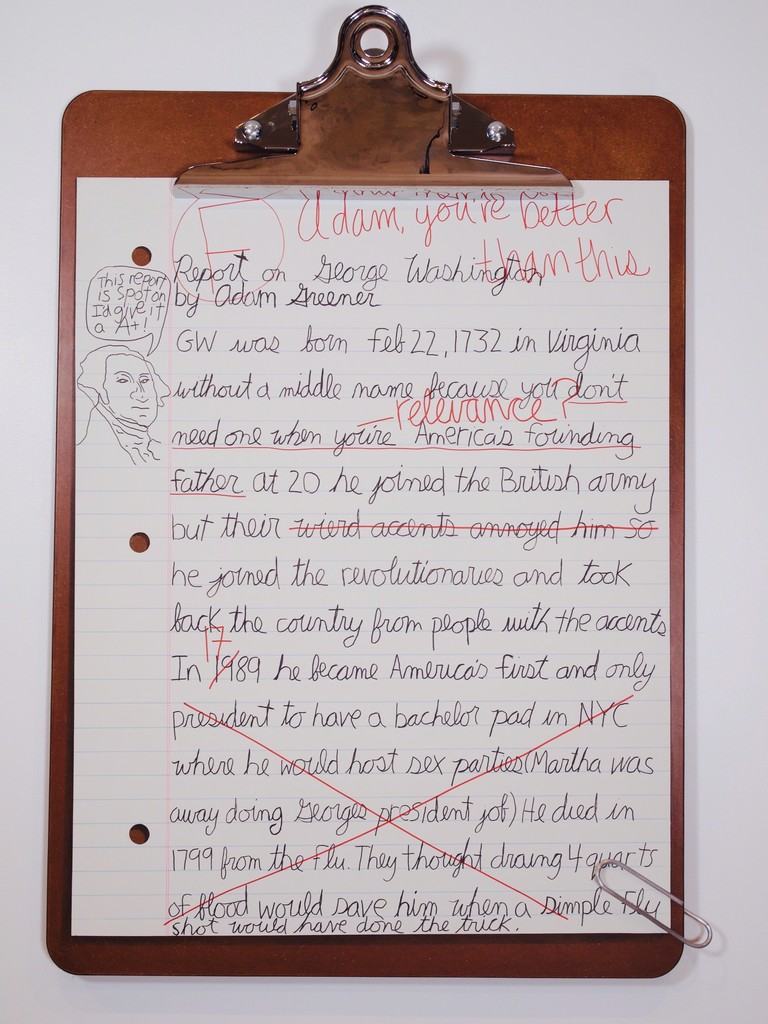 F
Adam, you're better
than this
Report on George Washington
by Adam Greener
This report
is spot on
I'd give it
a A+!
GW was born Feb 22, 1732 in Virginia
without a middle name because you don't
- relevance?
need one when you're America's founding
father at 20 he joined the British army
but their wierd accents annoyed him so
he joined the revolutionaries and took
back the country from people with the accents
17
In 1989 he became America's first and only
president to have a bachelor pad in NYC
where he would host sex parties(Martha was
away doing Georges president job) He died in
1799 from the flu. They thought draing 4 quarts
of blood would save him when a simple Fly
shot would have done the trick.